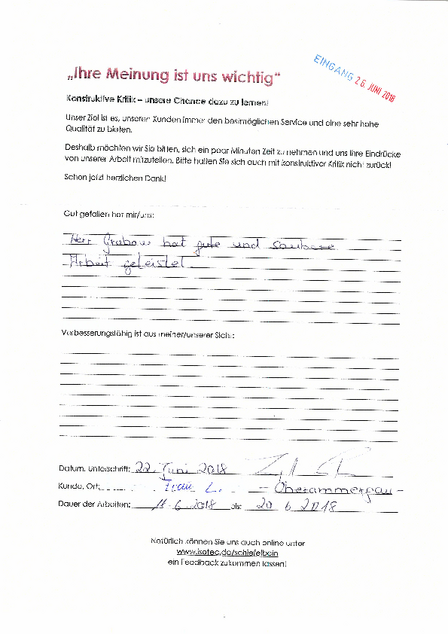 „Ihre Meinung ist uns wichtig“
EINGANG 26. JUNI 2018
Konstruktive Kritik – unsere Chance dazu zu lernen!
Unser Ziel ist es, unseren Kunden immer den bestmöglichen Service und eine sehr hohe
Qualität zu bieten.
Deshalb möchten wir Sie bitten, sich ein paar Minuten Zeit zu nehmen und uns Ihre Eindrücke
von unserer Arbeit mitzuteilen. Bitte halten Sie sich auch mit konstruktiver Kritik nicht zurück!
Schon jetzt herzlichen Dank!
Gut gefallen hat mir/uns:
Herr Grabow hat gute und saubere
Arbeit geleistet
Verbesserungsfähig ist aus meiner/unserer Sicht:
Datum, Unterschrift: 22. Juni 2018
Kunde, Ort: Frau L. - Oberammergau -
Dauer der Arbeiten: 6 2018 bis 20 6. 2018
Natürlich können Sie uns auch online unter
www.isotec.de/schiefelbein
ein Feedback zukommen lassen!